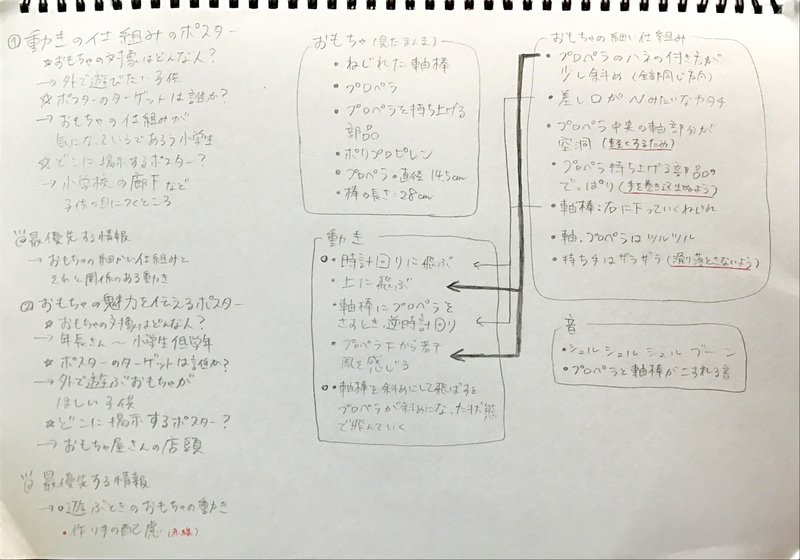 ① 動きの仕組みのポスター
☆おもちゃの対象はどんな人？
→外で遊びたい子供
☆ポスターのターゲットは誰か？
→おもちゃの仕組みが
気になっているであろう小学生
☆どこに掲示するポスター？
→小学校の廊下など
子供の目につくところ
最優先する情報
→おもちゃの細かい仕組みと
それと関係のある動き
② おもちゃの魅力を伝えるポスター
☆おもちゃの対象はどんな人？
→年長さん〜小学生低学年
☆ポスターのターゲットは誰か？
→外で遊ぶおもちゃが
ほしい子供
☆どこに掲示するポスター？
→おもちゃ屋さんの店頭
最優先する情報
→•遊ぶときのおもちゃの動き
•作り手の配慮(赤線)
おもちゃ(見たまんま)
•ねじれた軸棒
•プロペラ
•プロペラを持ち上げる
部品
•ポリプロピレン
•プロペラの直径 14.5cm
•棒の長さ:28cm
動き
•時計回りに飛ぶ
•上に飛ぶ
•軸棒にプロペラを
さすとき、逆時計回り
•プロペラ下から若干
風を感じる
•軸棒を斜めにして飛ばすと
プロペラが斜めになった状態
で飛んでいく
おもちゃの細い仕組み
•プロペラのハネの付き方が
少し斜め(全部同じ方だ)
•差し口がNみたいなカタチ
•プロペラ中央の軸部分が
空洞(軽くするため)
•プロペラ持ち上げる部品の
でっぱり(手を巻き込ませぬよう)
•軸棒:右に下っていくねじれ
•軸、プロペラはツルツル
•持ち手はザラザラ(滑り落とさないよう)
音
•シュルシュルシュル ブーン
•プロペラと軸棒がこすれる音